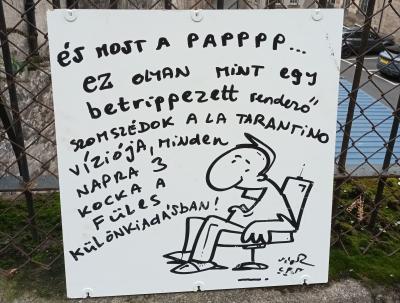 ÉS MOST A PAPPPP...
EZ OLYAN MINT egy
betrippezett rendező
SZOMSZÉDOK A LA TARANTINO
VÍZIÓJA, MINDEN
NAPRA 3
KOCKA A
FÜLES
KÜLÖNKIADÁSBAN!